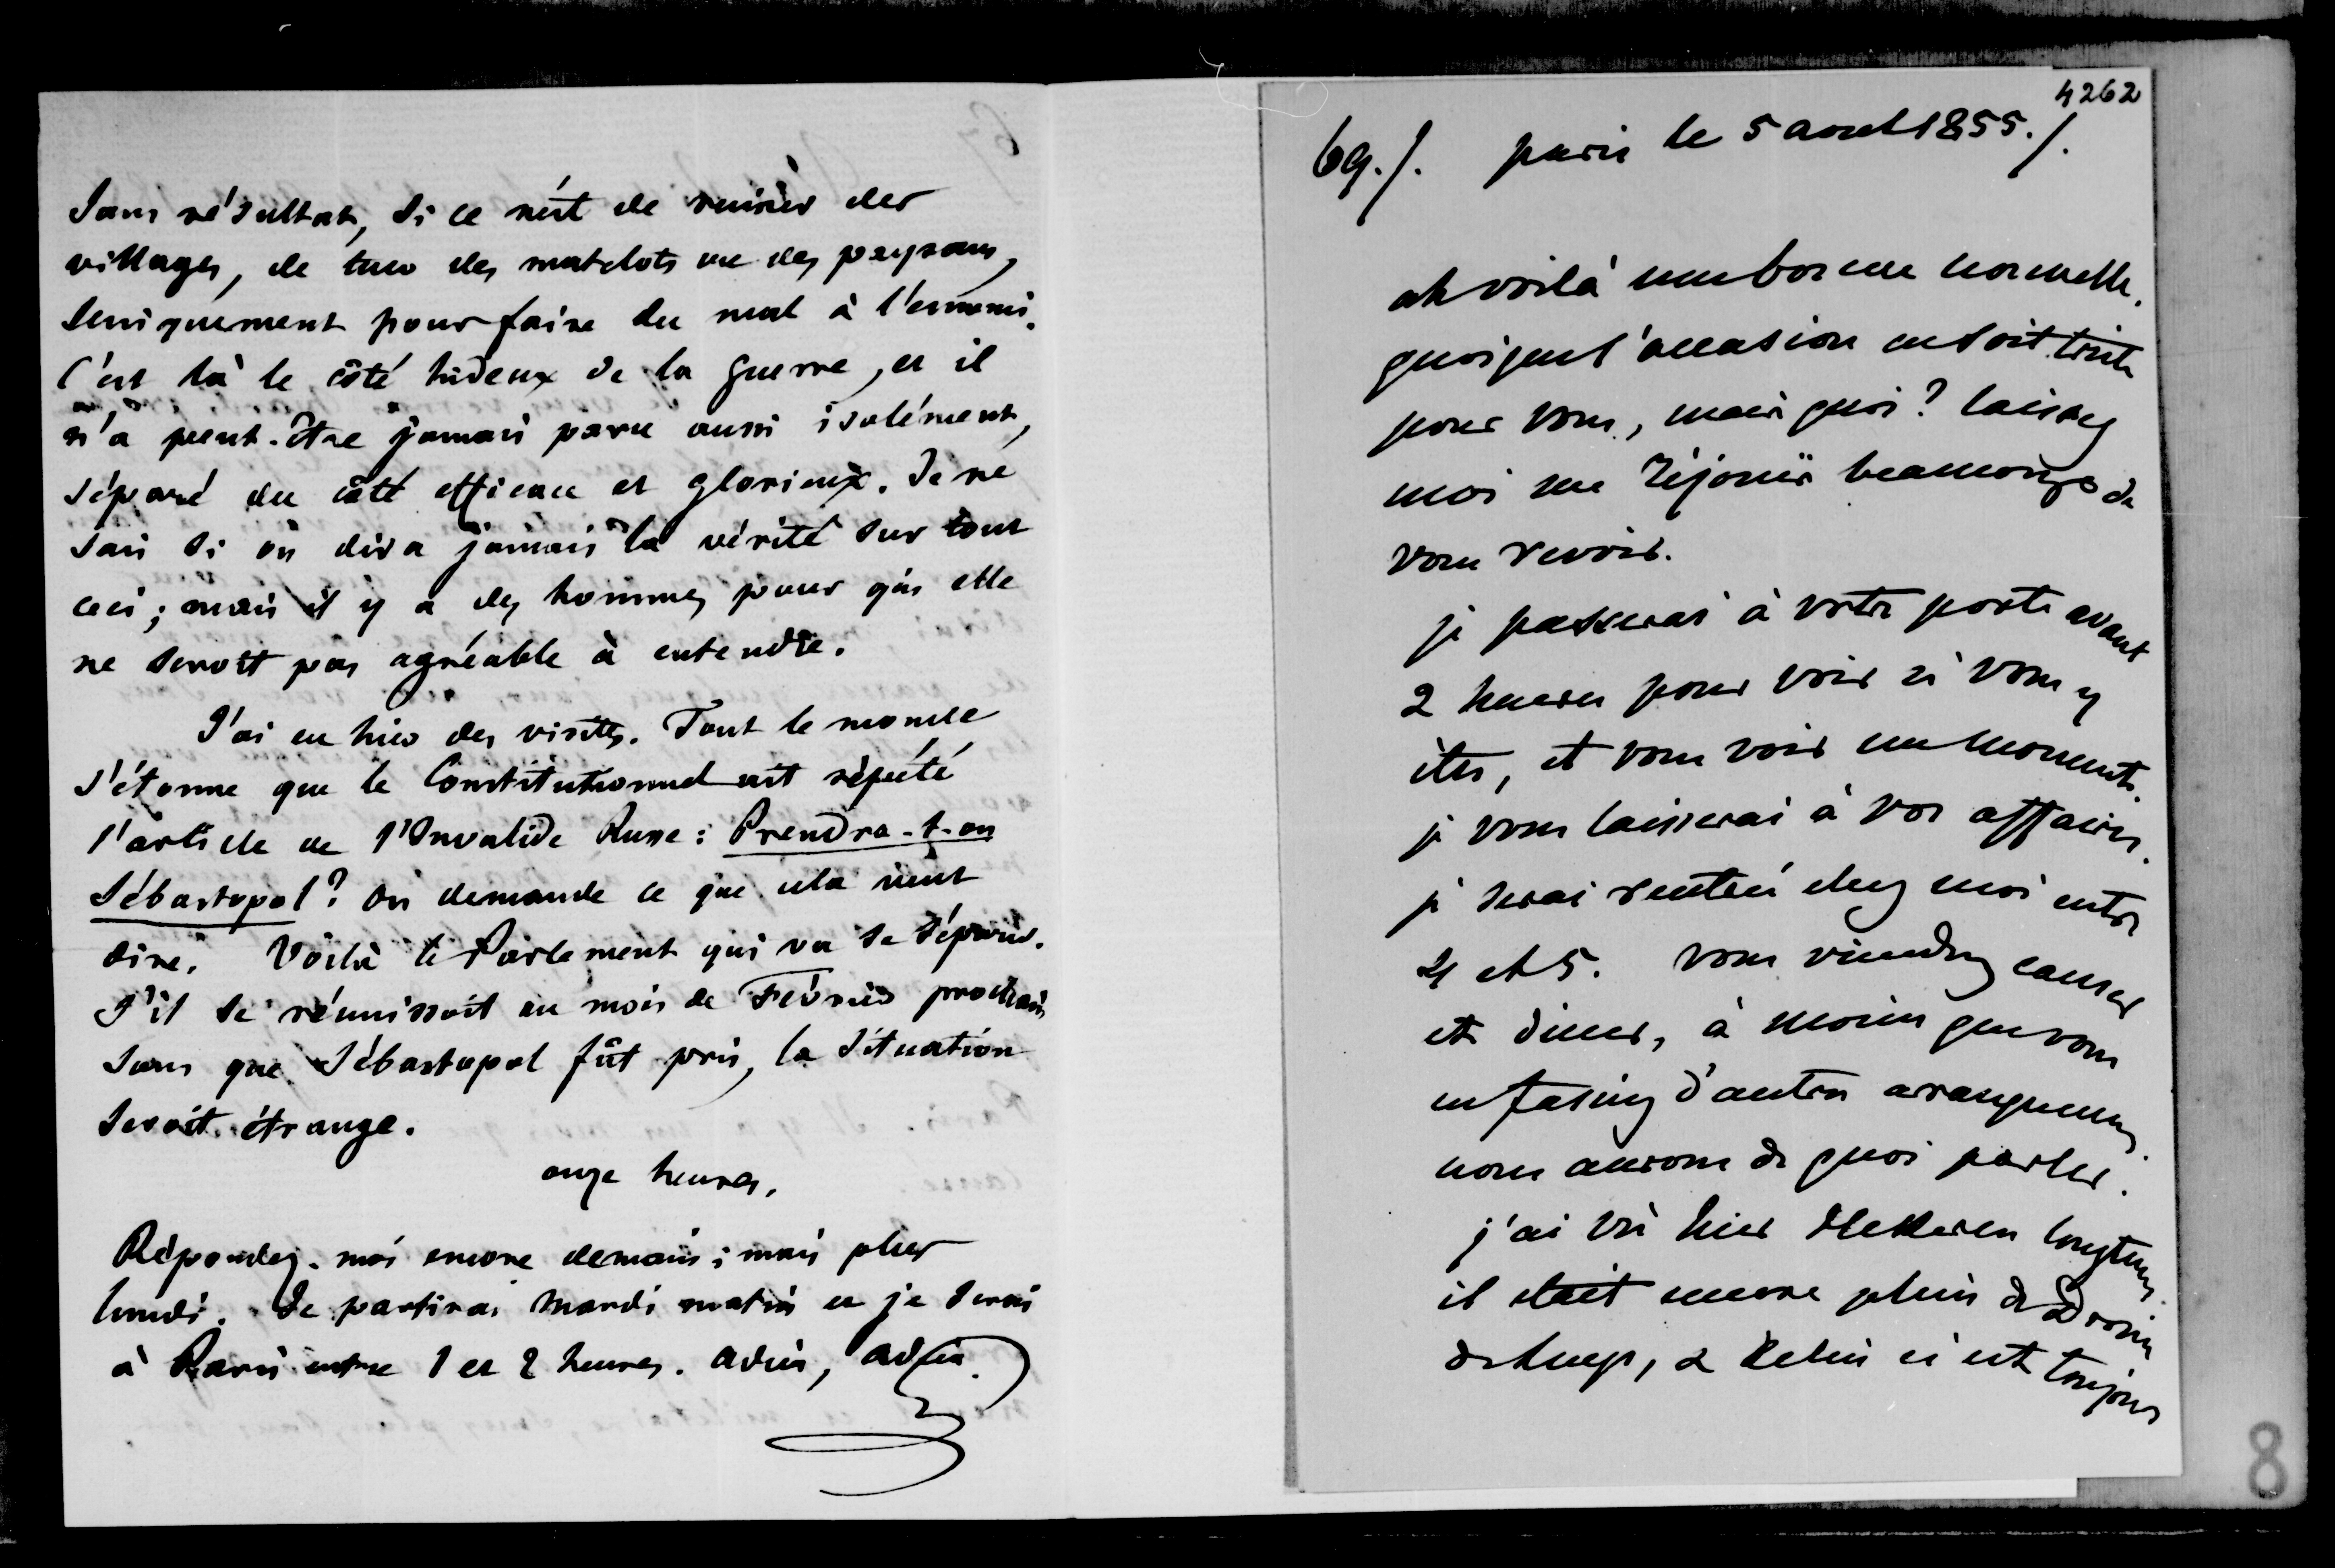 sans résultat, si ce n'est de ruiner des
villages, de tuer des matelots ou des paysans,
uniquement pour faire du mal à l'ennemi.
C'est là le côté hideux de la guerre, et il
n'a peut-être jamais paru aussi isolément,
séparé du côté efficace et glorieux. Je ne
sais si on dira jamais la vérité sur tout
ceci ; mais il y a des hommes pour qui elle
ne seroit pas agréable à entendre.
J'ai eu hier des visites. Tout le monde
s'étonne que le Constitutionnel ait répété
l'article de l'Invalide Russe : Prendra-t-on
Sébastopol ? On demande ce que cela veut
dire. Voilà le Parlement qui va se séparer.
S'il se réunissoit au mois de Février prochain
sans que Sébastopol fût pris, la situation
seroit étrange.
onze heures.
Répondez-moi encore demain ; mais plus
lundi. Je partirai mardi matin et je serai
à Paris entre 1 et 2 heures. Adieu, adieu.
4262
69./. paris le 5 aout 1855./.
ah voilà une bonne nouvelle.
quoique l'occasion en soit triste
pour vous, mais quoi ? laissez
moi me réjouir beaucoup de
vous revoir.
je passerai à votre porte avant
2 heures pour voir si vous y
êtes, et vous voir un moment.
je vous laisserai à vos affaires.
je serai rentrée chez moi entre
4 et 5. vous viendrez causer
et diner, à moins que vous
en fasiez d'autres arrangemens.
nous aurons de quoi parler.
j'ai vu hier Hekeren longtems
il était encore plein de
, &amp; celui ci est toujours
8